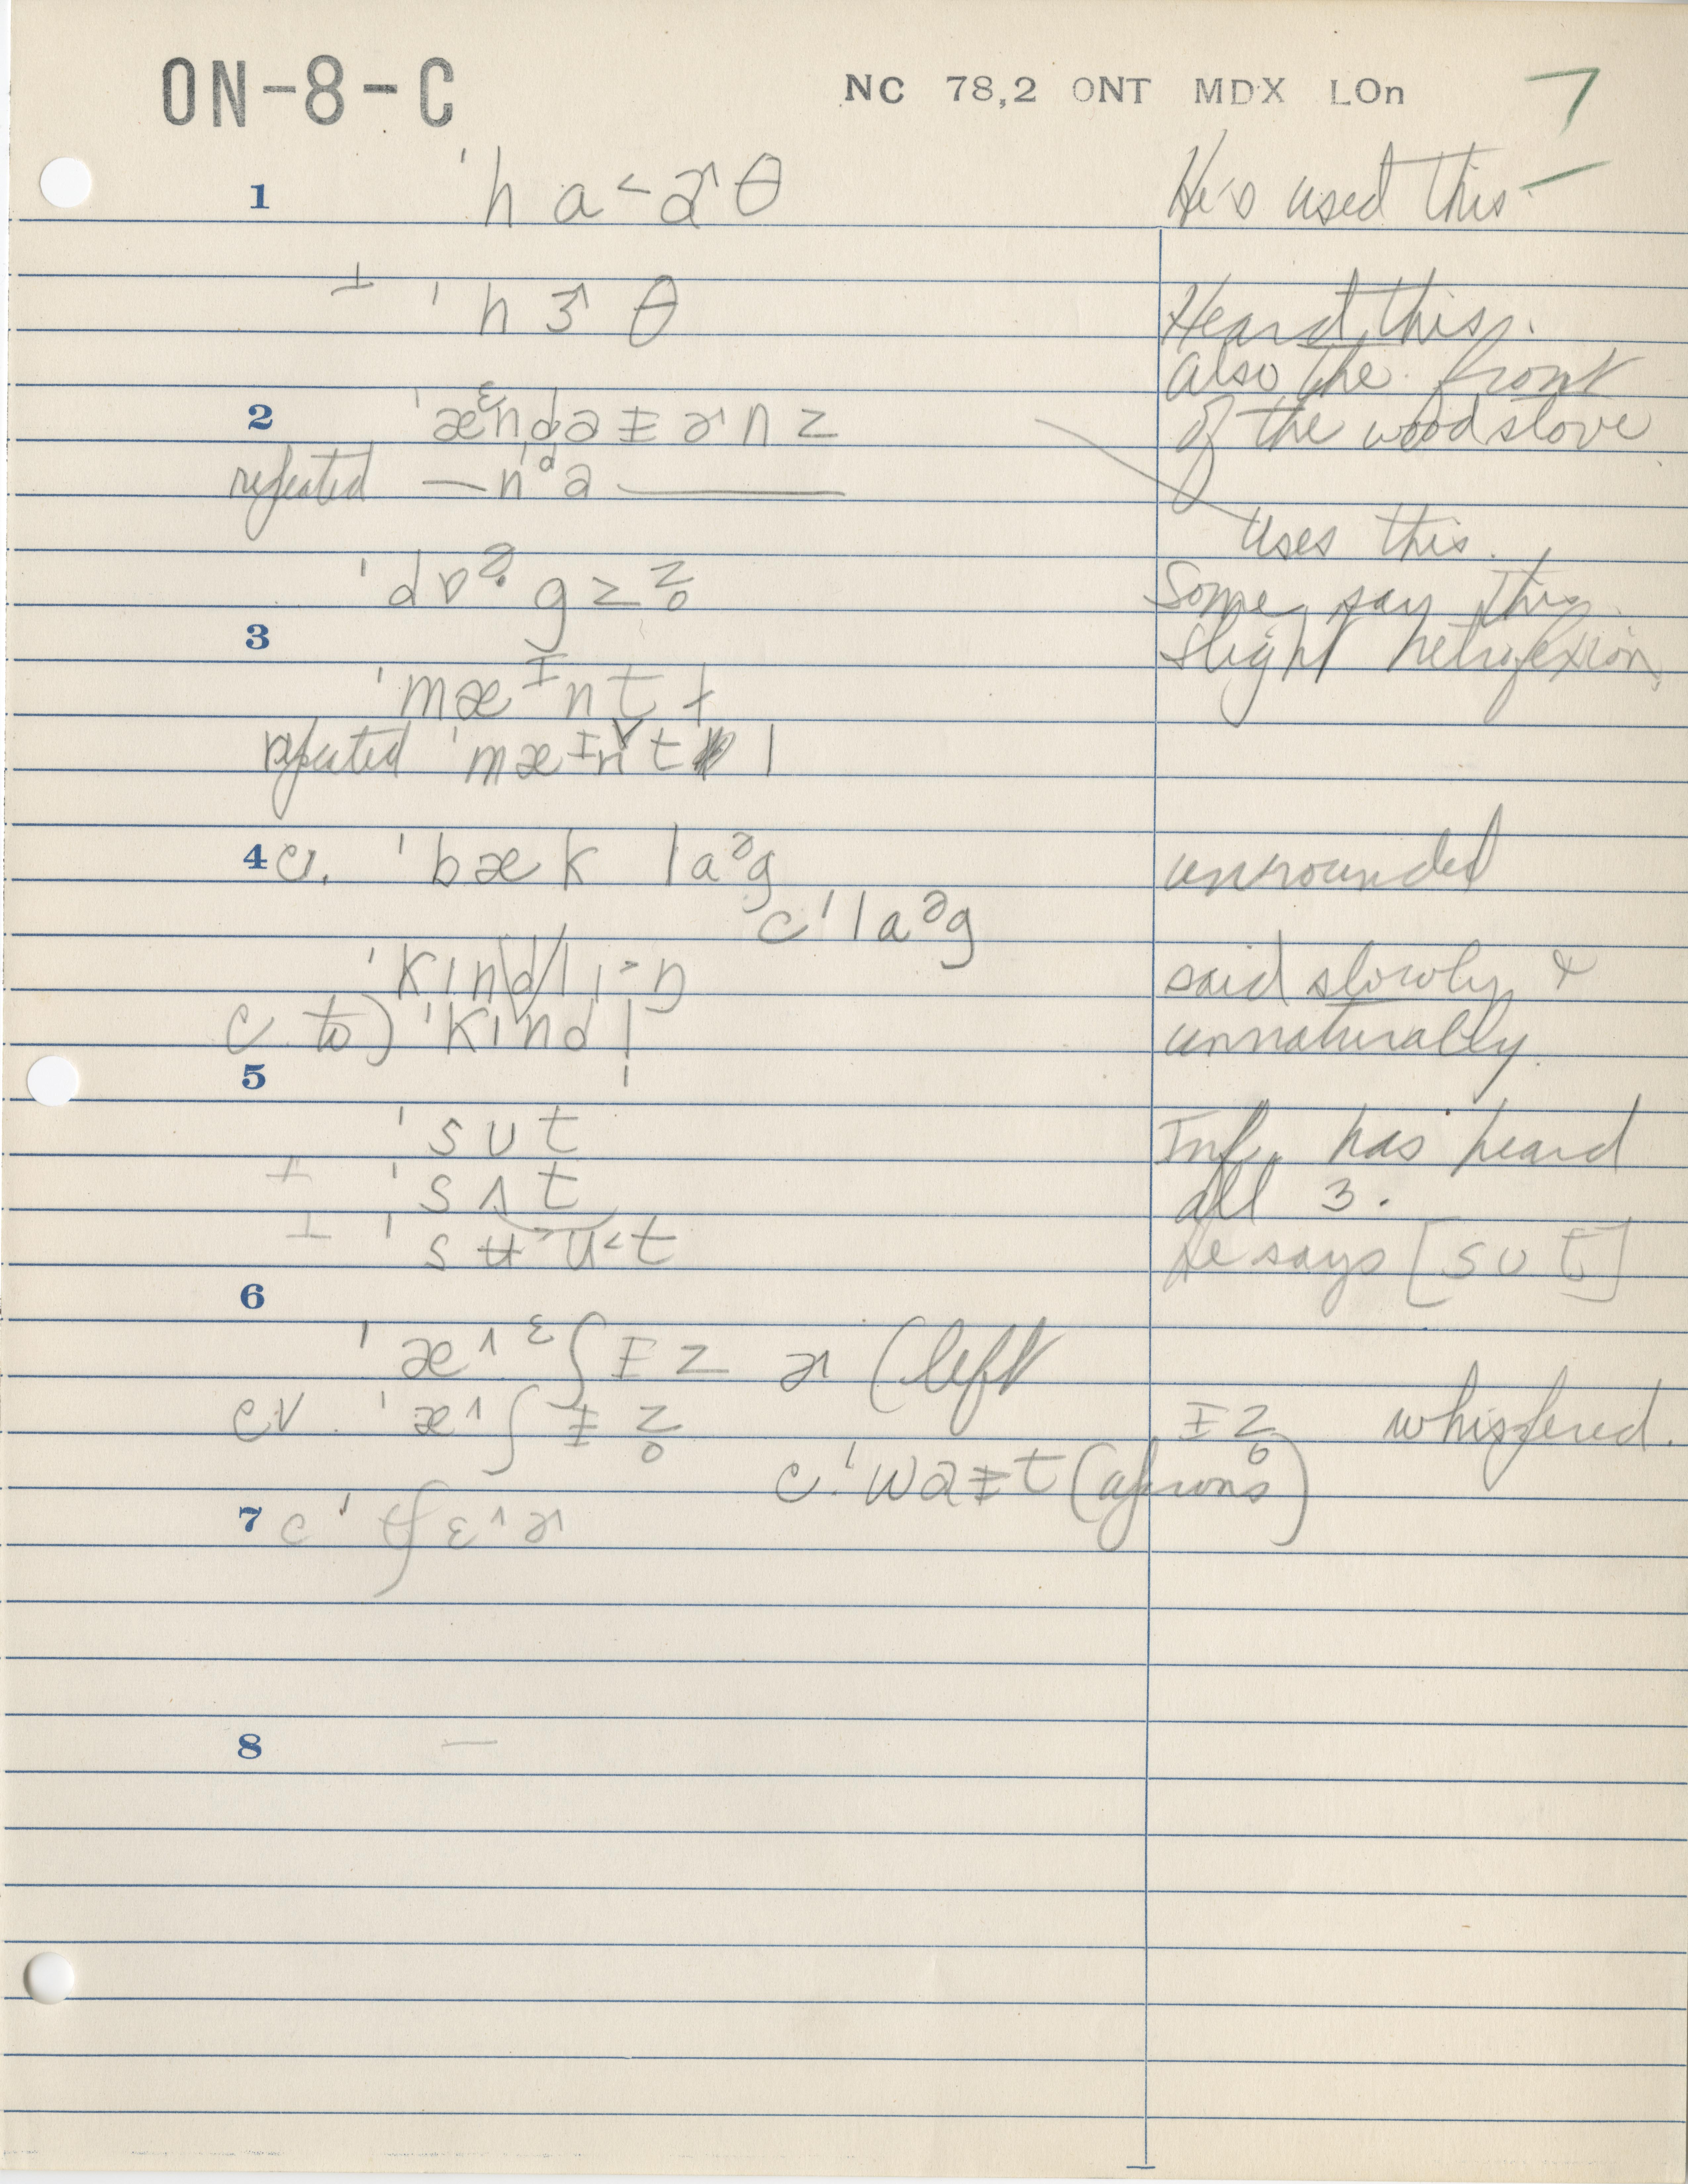 ON-8-C NC 78,2 ONT MDX LOn 7
1 ˈh a˂ɚ θ He's used this.
⊥ ˈh ɝ θ Heard this.
also the front
2 ˈæᵋndəɪɚnz of the woodstove
repeated —nᵈə——
Uses this.
ˈdɒᵊgzz̥ Some say this
3 slight retroflexion.
ˈmæᶦntɫ
repeated ˈmæɪn˅tl
4 c. ˈbæk laᵊg unrounded
cˈlaᵊg
ˈkɪndlɪ˃n said slowly &
c to) ˈkɪndl̩ unnaturally.
5
ˈsʊt Inf. has heard
⊥ ˈsʌt all 3.
⊥ ˈsʉ˃u˂t he says [sʊt]
6
ˈæ˄ᵋʃɪz ɚ (left
cv. ˈæ˄ʃɪz̥ ɪz̥ whispered.
c. ˈwəɪt (aprons)
7 cˈtʃɛ˄ɚ
8 —